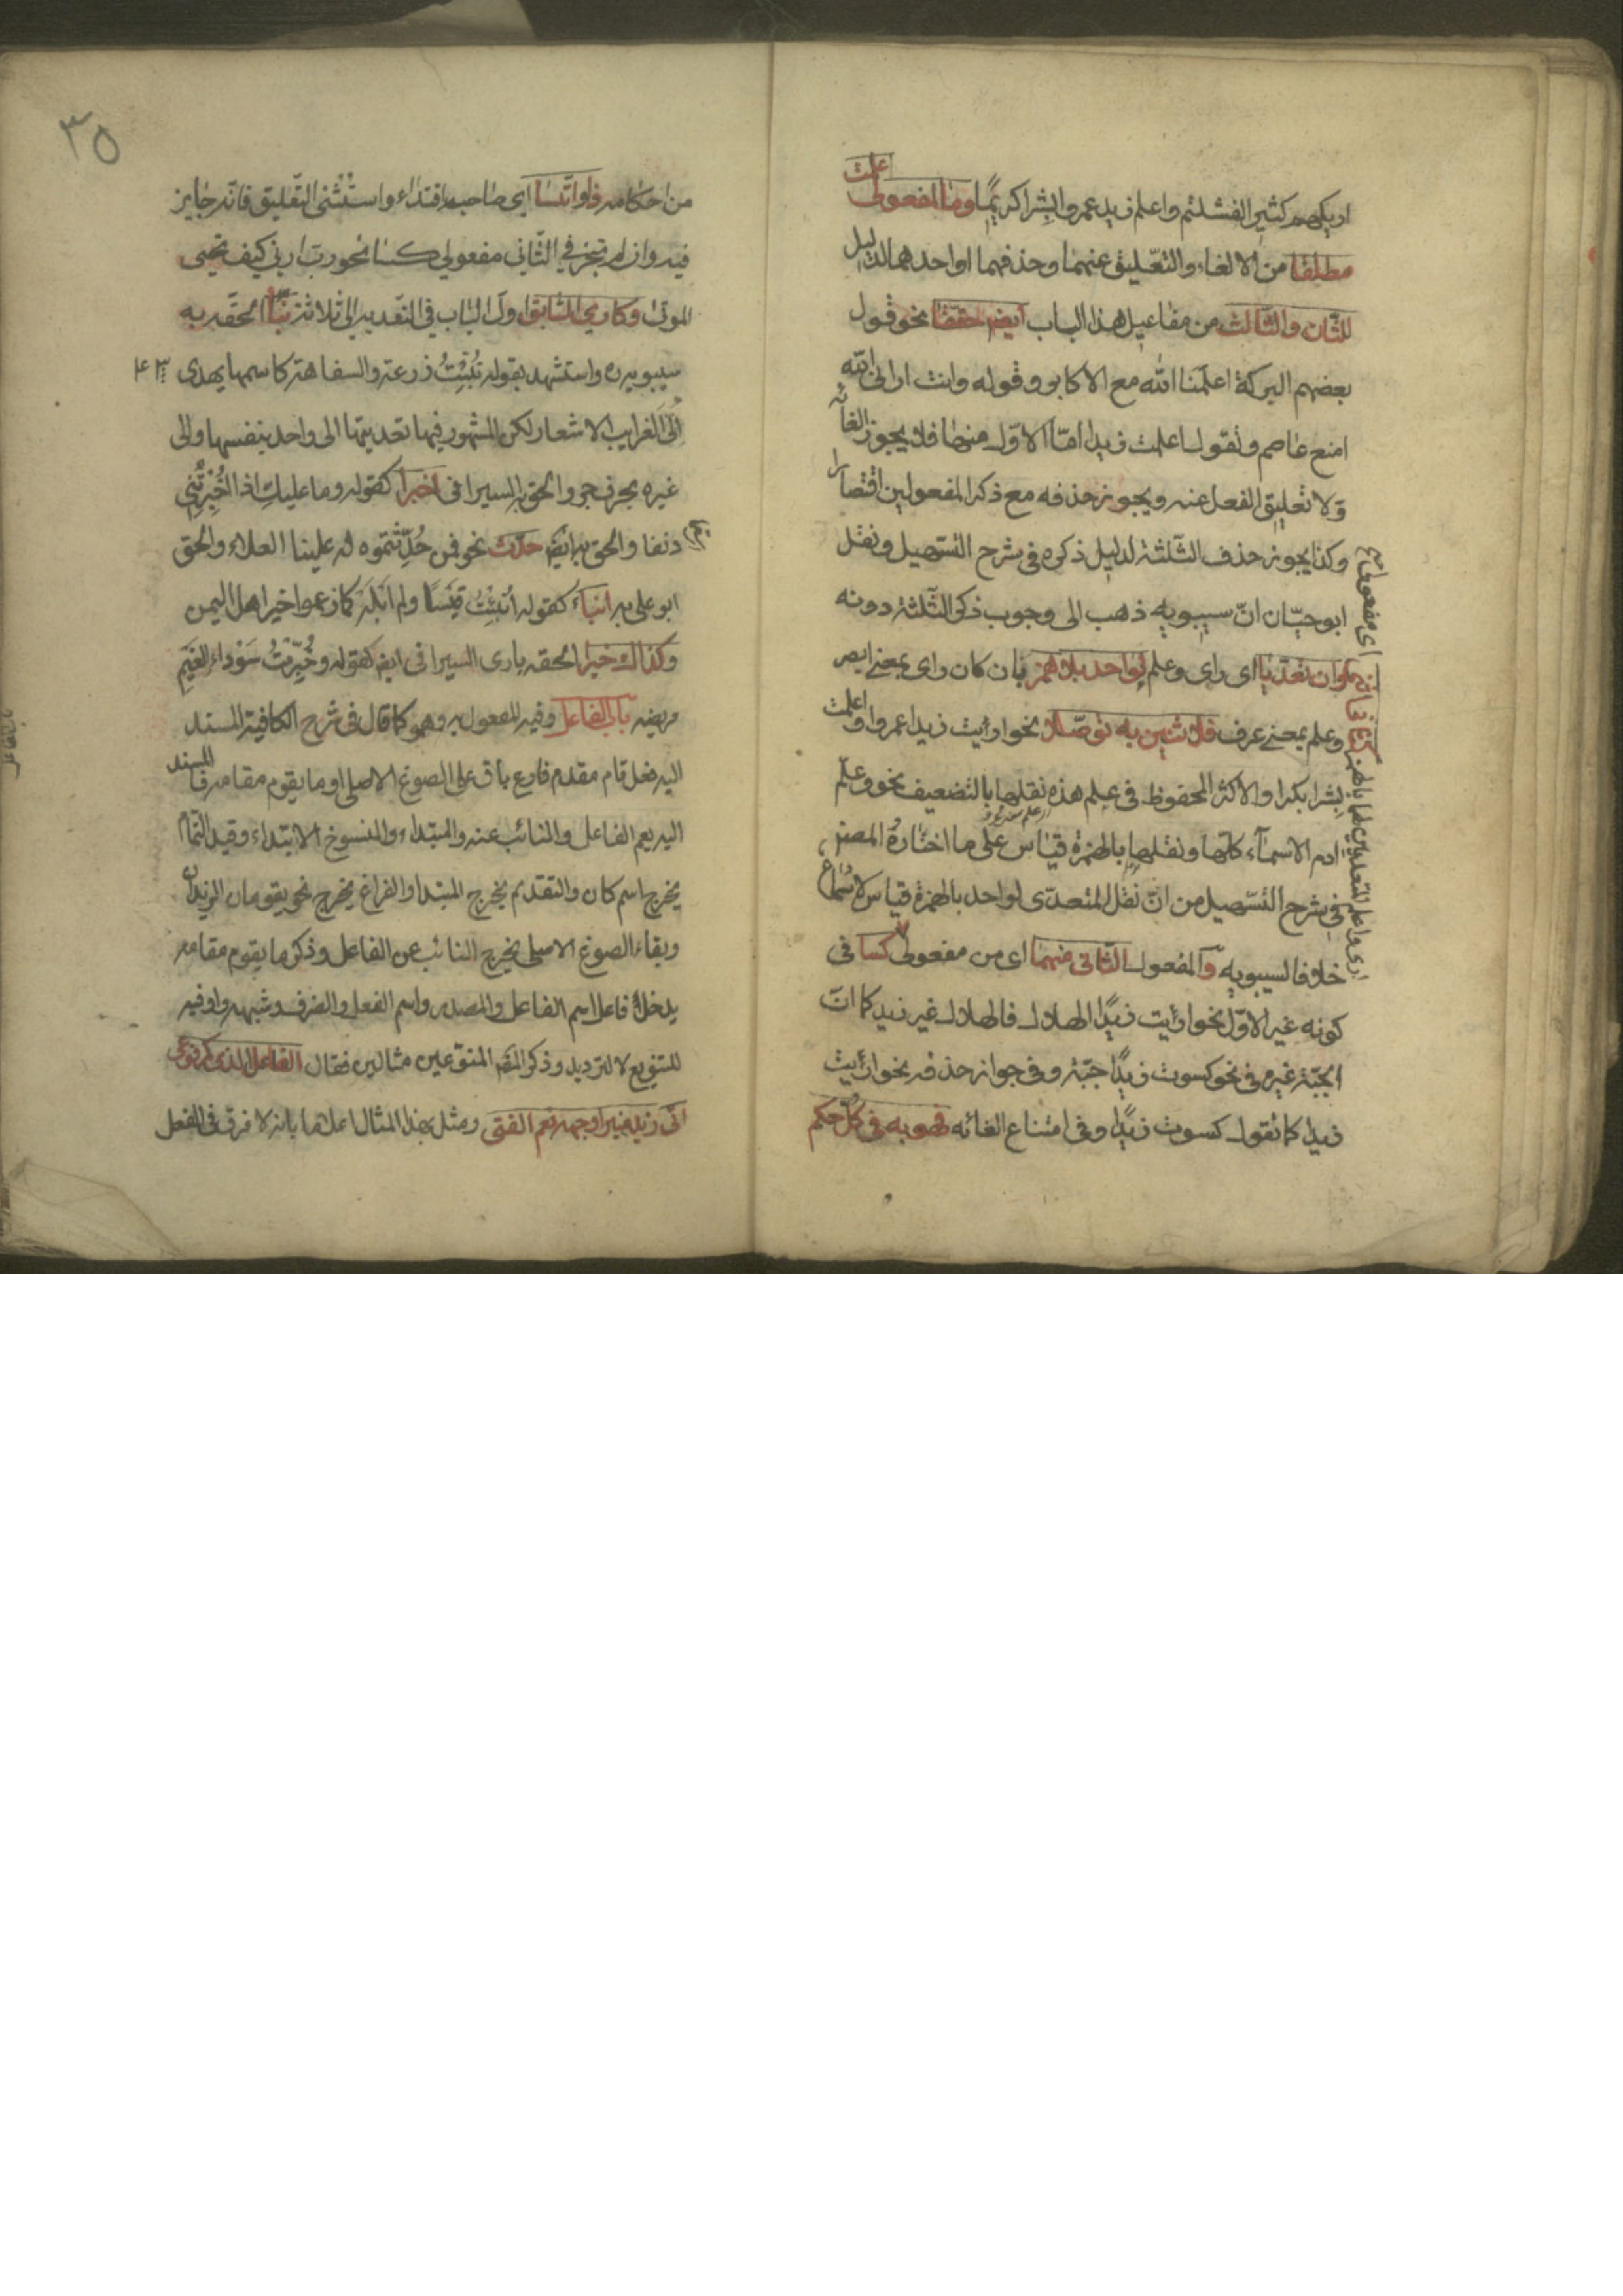 اريكهم كثيرا لفشلتم واعلم زيد عمروا بشرا كريما وما لمفعولى علمت
مطلقا من الالغاء والتعليق عنهما وحذفهما او احدهما لدليل
للثان والثالث من مفاعيل هذا الباب ايضا حققا نحو قول
بعضهم البركة اعلمنا الله مع الاكابر وقوله وانت ارانى الله
امنع عاصم وتقول اعلمت زيدا امّا الاوّل منها فلا يجوز الغائه
ولا تعليق الفعل عنه ويجوز حذفه مع ذكر المفعولين اقتصارا
وكذا يجوز حذف الثلثة لدليل ذكره فى شرح التسهيل ونقل
ابو حيّان انّ سيبويه ذهب الى وجوب ذكر الثلثة دونه
وان تعدّيا اى راى وعلم لواحد بلا همز بان كان راى بمعنى ابصر
وعلم بمعنى عرف فلاثنين به توصّلا نحو ارايت زيدا عمروا واعلمت
بشرا بكرا والاكثر المحفوظ فى علم هذه نقلها بالتضعيف نحو وعلّم
ادم الاسمآء كلّها ونقلها بالهمزة قياس على ما اختاره المصنف
فى شرح التسهيل من انّ نقل المتعدّى لواحد بالهمزة قياس لا سماع
خلافا لسيبويه والمفعول الثانى منهما اى من مفعولى كسا فى
كونه غير الاوّل نحو ارأيت زيدًا الهلال فالهلال غير زيد كما انّ
الجبّة غيره فى نحو كسوت زيدًا جبّة وفى جواز حذفه نحو ارأيت
زيدا كما تقول كسوت زيدًا وفى امتناع الغائه فهو به فى كلّ حكم
٣٥
من احكامه ذو ائتسا اى صاحب اقتداء واستثنى التّعليق فانّه جايز
فيه وان لم يجز فى الثّانى مفعولى كسا نحو ربّ ارنى كيف تحيى
الموتى وكارى السّابق اول الباب فى التعديه الى ثلاثة نبّأ الحقه به
سيبويه واستشهد بقوله نُبّئتُ زرعة والسفاهة كاسمها يهدى
الىّ غرايب الاشعار لكن المشهور فيها تعديتها الى واحد بنفسها والى
غيره بحرف جر والحق به السيرافى اخبرا كقوله وما عليك اذا اخبرتنى
دنفا والحق به ايضا حدّث نحو فمن حُدّثتموه له علينا العلاء والحق
ابو على به انباء كقوله اُنبئتُ قيسًا ولم ابله كما زعموا خير اهل اليمن
وكذاك خبرا الحقه بارى السيرافى ايضا كقوله وخُبّرتُ سوداء الغميم
مريضة باب الفاعل وفيه المفعول به وهو كما قال فى شرح الكافية المسند
اليه فعل تام مقدم فارغ باق على الصوغ الاصلى او ما يقوم مقامه فالمسند
اليه يعم الفاعل والنائب عنه والمبتداء والمنسوخ الابتداء وقيد التمام
يخرج اسم كان والتقديم يخرج المبتدا والفراغ يخرج نحو يقومان الزيدان
وبقاء الصوغ الاصلى يخرج النائب عن الفاعل وذكر ما يقوم مقامه
يدخل فاعل اسم الفاعل والمصدر واسم الفعل والظرف وشبهه واو فيه
للتنويع لا للترديد وذكر المص للنوعين مثالين فقال الفاعل الذى كمرفوعى
اتى زيد منيرا وجهه نعم الفتى ومثل بهذا المثال اعلاما بانه لا فرق فى الفعل